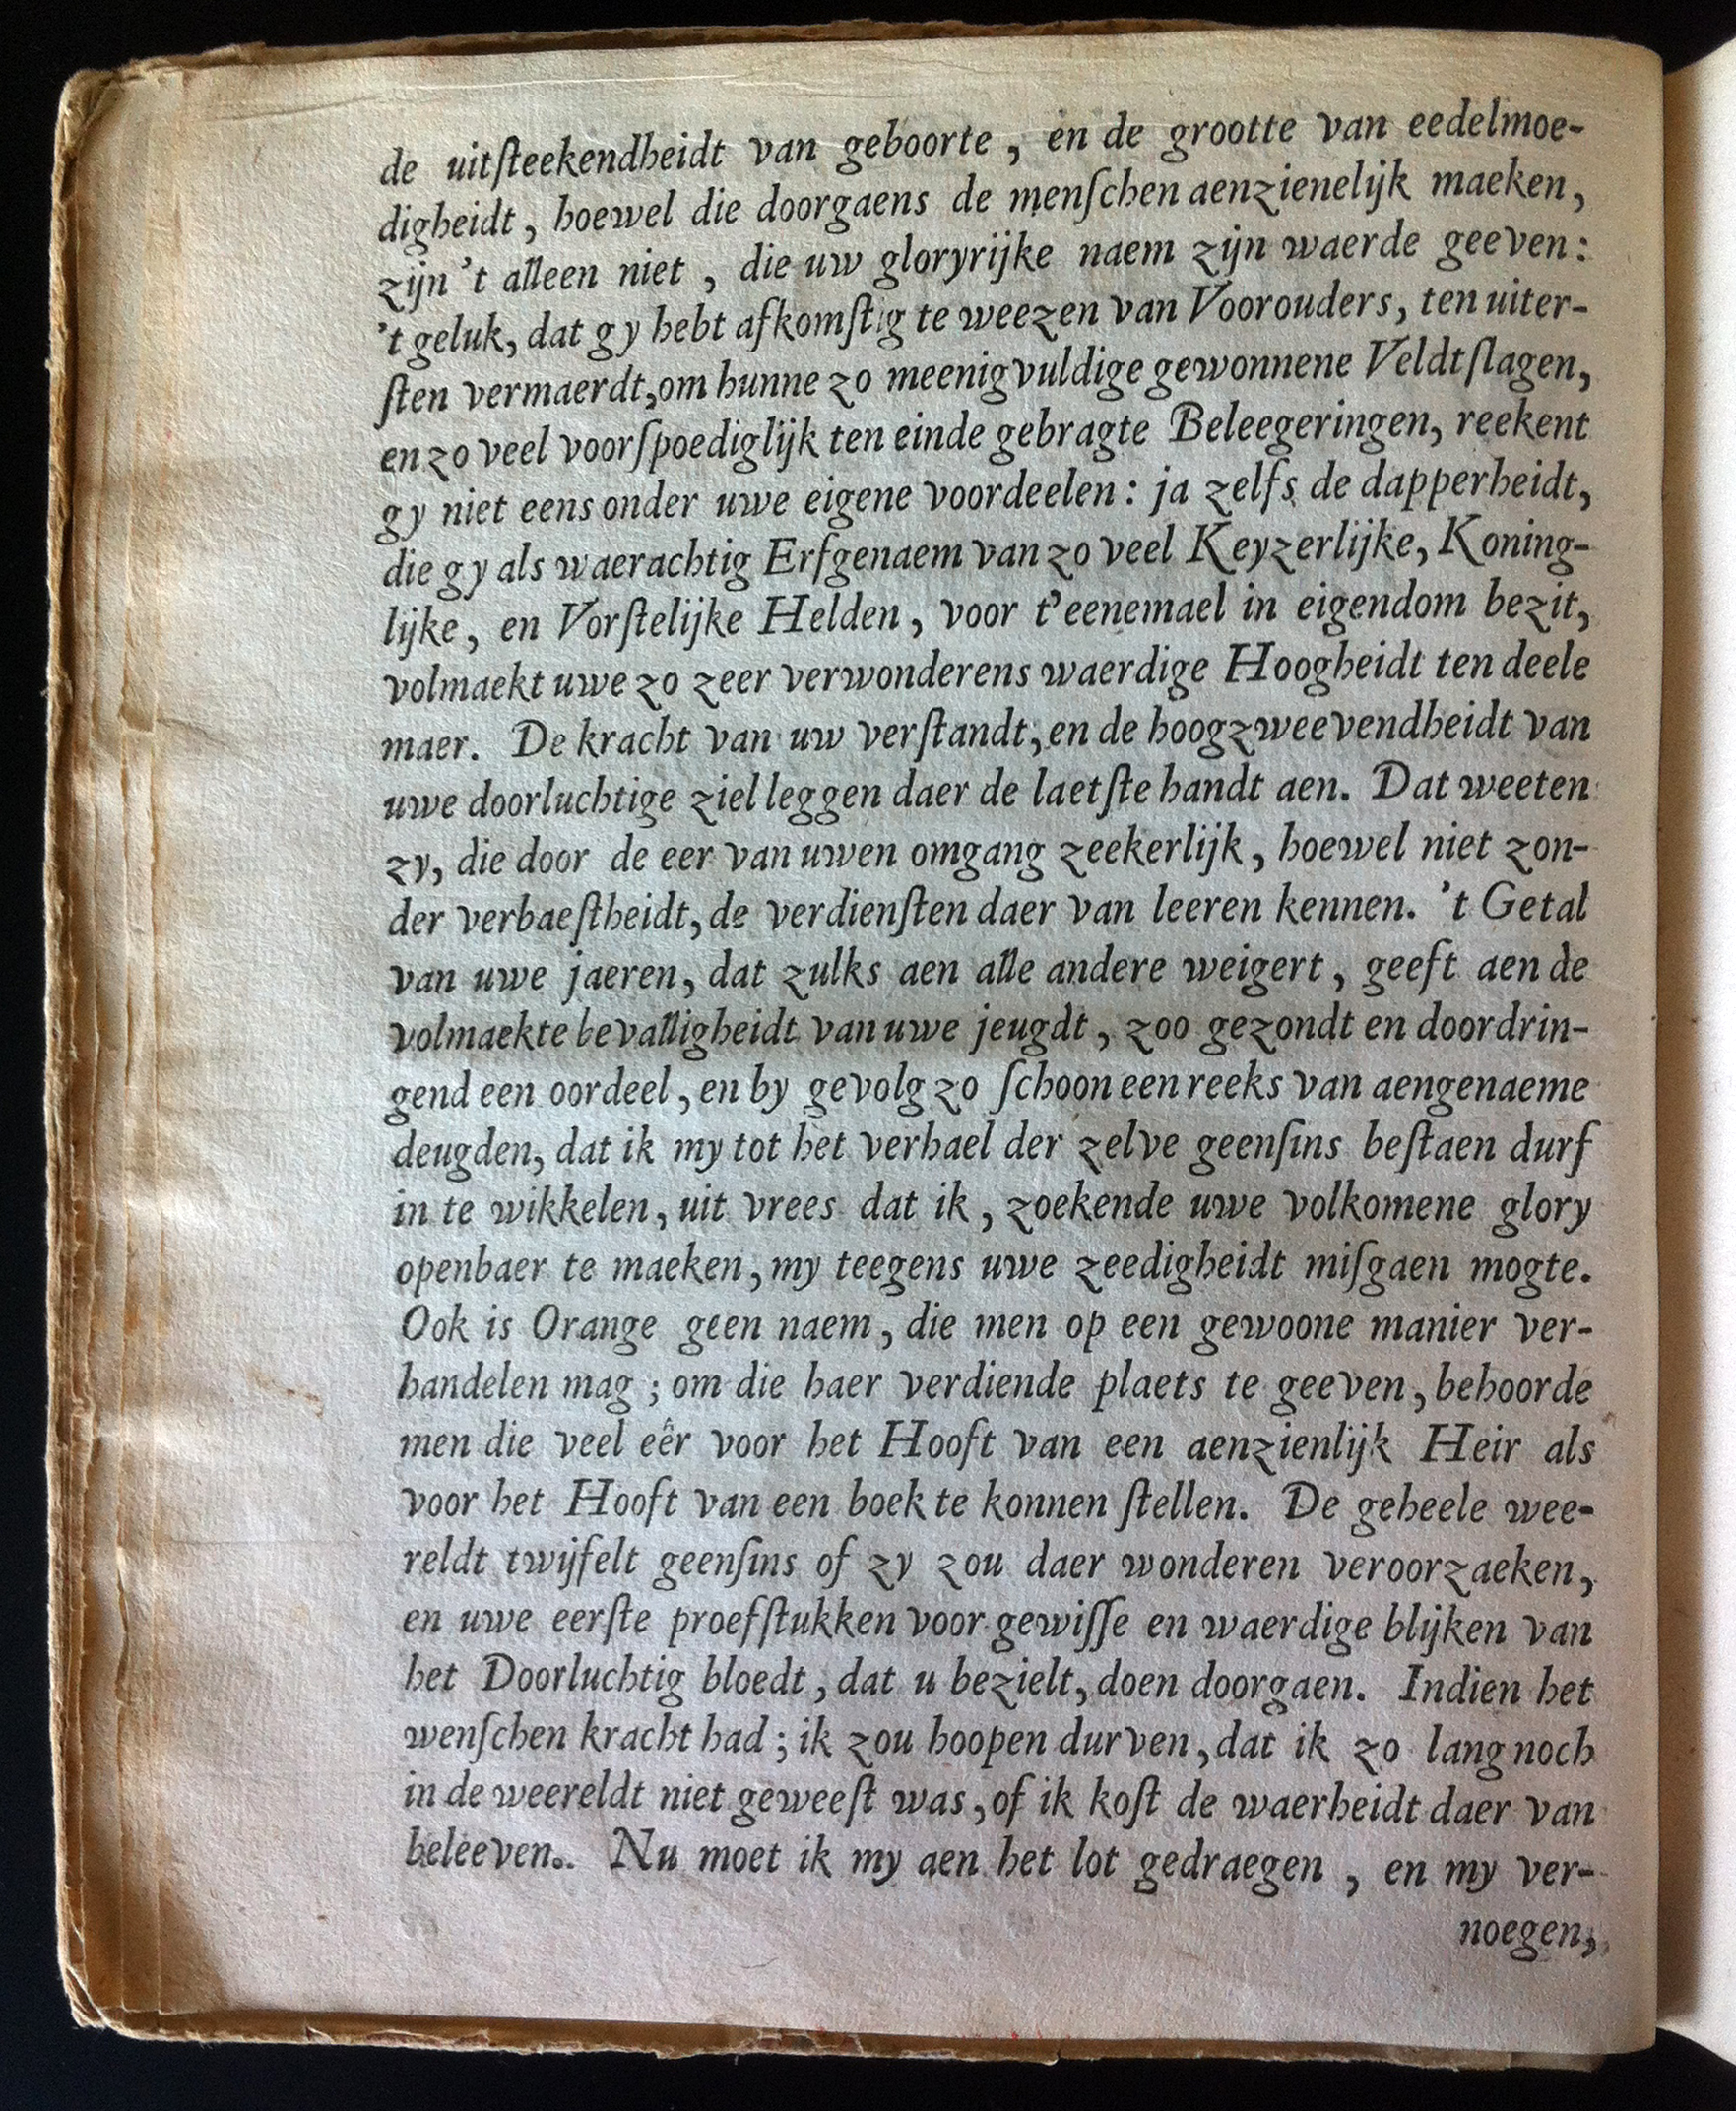 de uitſteekendheidt van geboorte, en de grootte van eedelmoe-
digheidt, hoewel die doorgaens de menſchen aenzienelijk maeken,
zijn 't alleen niet, die uw gloryrijke naem zijn waerde geeven:
't geluk, dat gy hebt afkomſtig te weezen van Voorouders, ten uiter-
ſten vermaerdt, om hunne zo meenigvuldige gewonnene Veldtſlagen,
en zo veel voorſpoediglijk ten einde gebragte Beleegeringen, reekent
gy niet eens onder uwe eigene voordeelen: ja zelfs de dapperheidt,
die gy als waerachtig Erfgenaem van zo veel Keyzerlijke, Koning-
lijke, en Vorſtelijke Helden, voor t'eenemael in eigendom bezit,
volmaekt uwe zo zeer verwonderens waerdige Hoogheidt ten deele
maer. De kracht van uw verſtandt, en de hoogzweevendheidt van
uwe doorluchtige ziel leggen daer de laetſte handt aen. Dat weeten
zy, die door de eer van uwen omgang zeekerlijk, hoewel niet zon-
der verbaeſtheidt, de verdienſten daer van leeren kennen. 't Getal
van uwe jaeren, dat zulks aen alle andere weigert, geeft aen de
volmaekte bevalligheidt van uwe jeugdt, zoo gezondt en doordrin-
gend een oordeel, en by gevolg zo ſchoon een reeks van aengenaeme
deugden, dat ik my tot het verhael der zelve geenſins beſtaen durf
in te wikkelen, uit vrees dat ik, zoekende uwe volkomene glory
openbaer te maeken, my teegens uwe zeedigheidt miſgaen mogte.
Ook is Orange geen naem, die men op een gewoone manier ver-
handelen mag; om die haer verdiende plaets te geeven, behoorde
men die veel eêr voor het Hooft van een aenzienlijk Heir als
voor het Hooft van een boek te konnen ſtellen. De geheele wee-
reldt twijfelt geenſins of zy zou daer wonderen veroorzaeken,
en uwe eerſte proefſtukken voor gewiſſe en waerdige blijken van
het Doorluchtig bloedt, dat u bezielt, doen doorgaen. Indien het
wenſchen kracht had; ik zou hoopen durven, dat ik zo lang noch
in de weereldt niet geweeſt was, of ik koſt de waerheidt daer van
beleeven. Nu moet ik my aen het lot gedraegen, en my ver-
noegen,